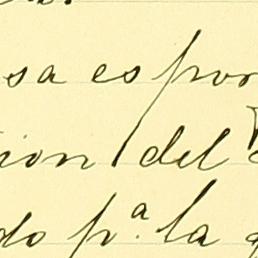 sa es por
ion del
do pª. la